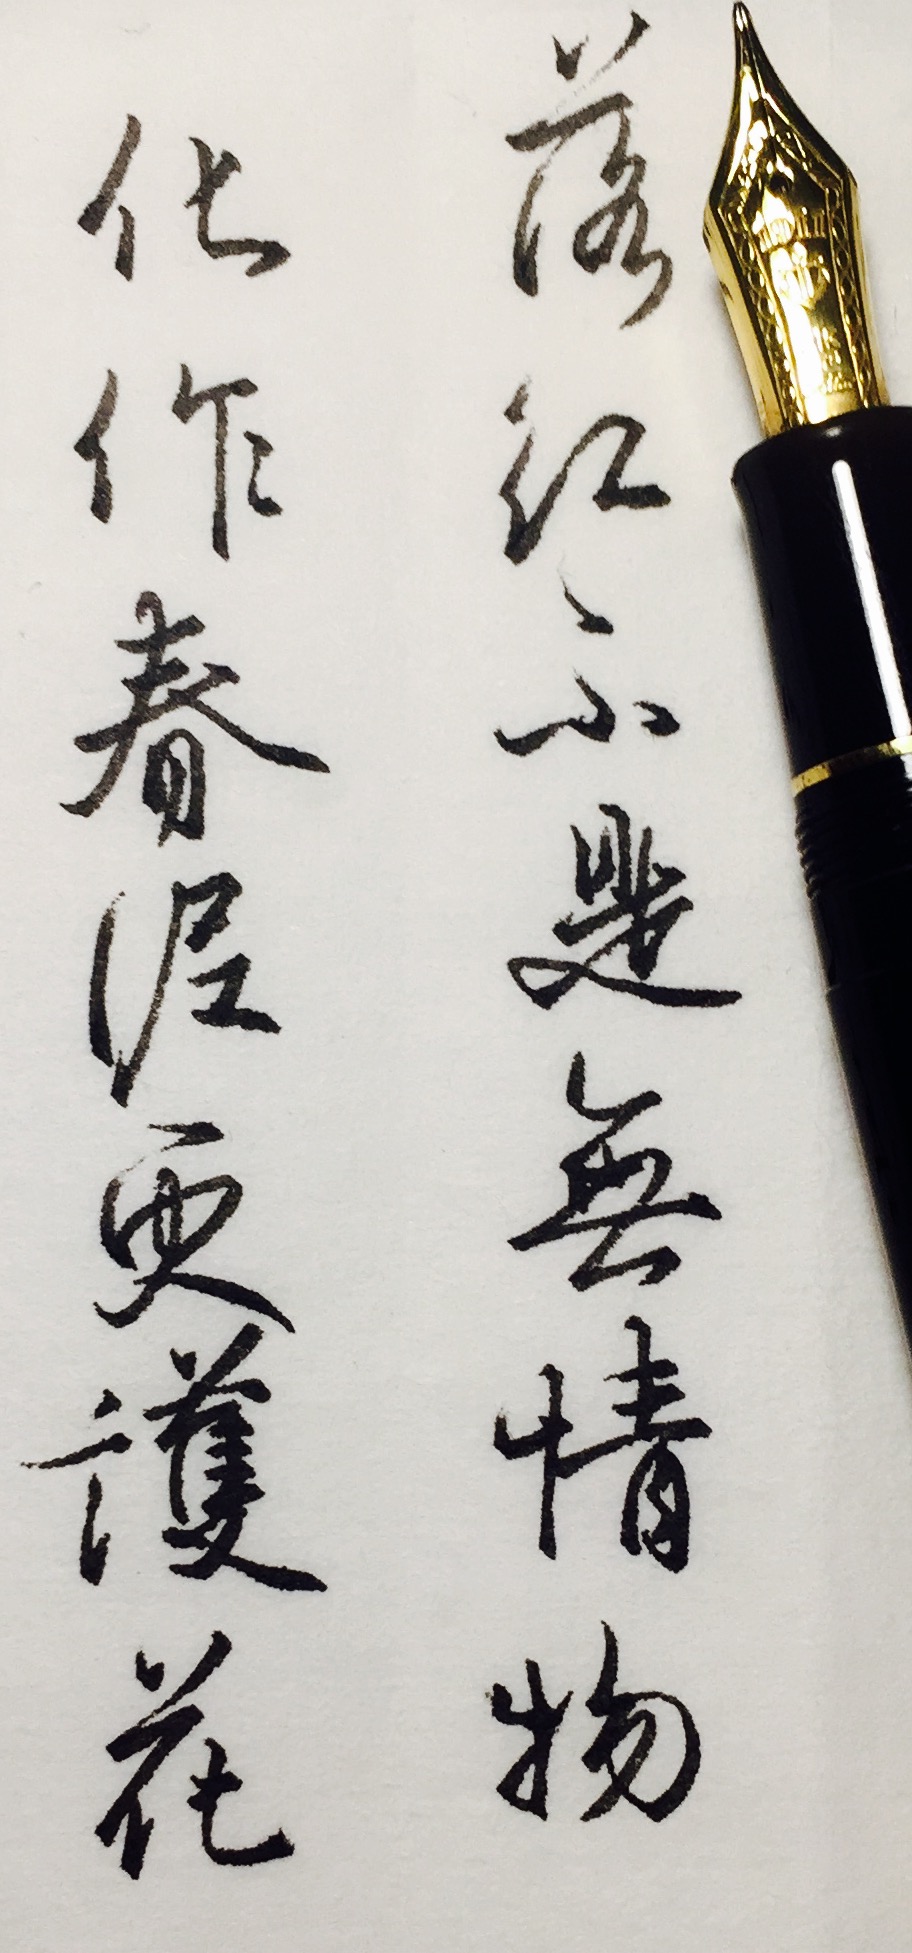 落红不是無情物
化作春泥更護花